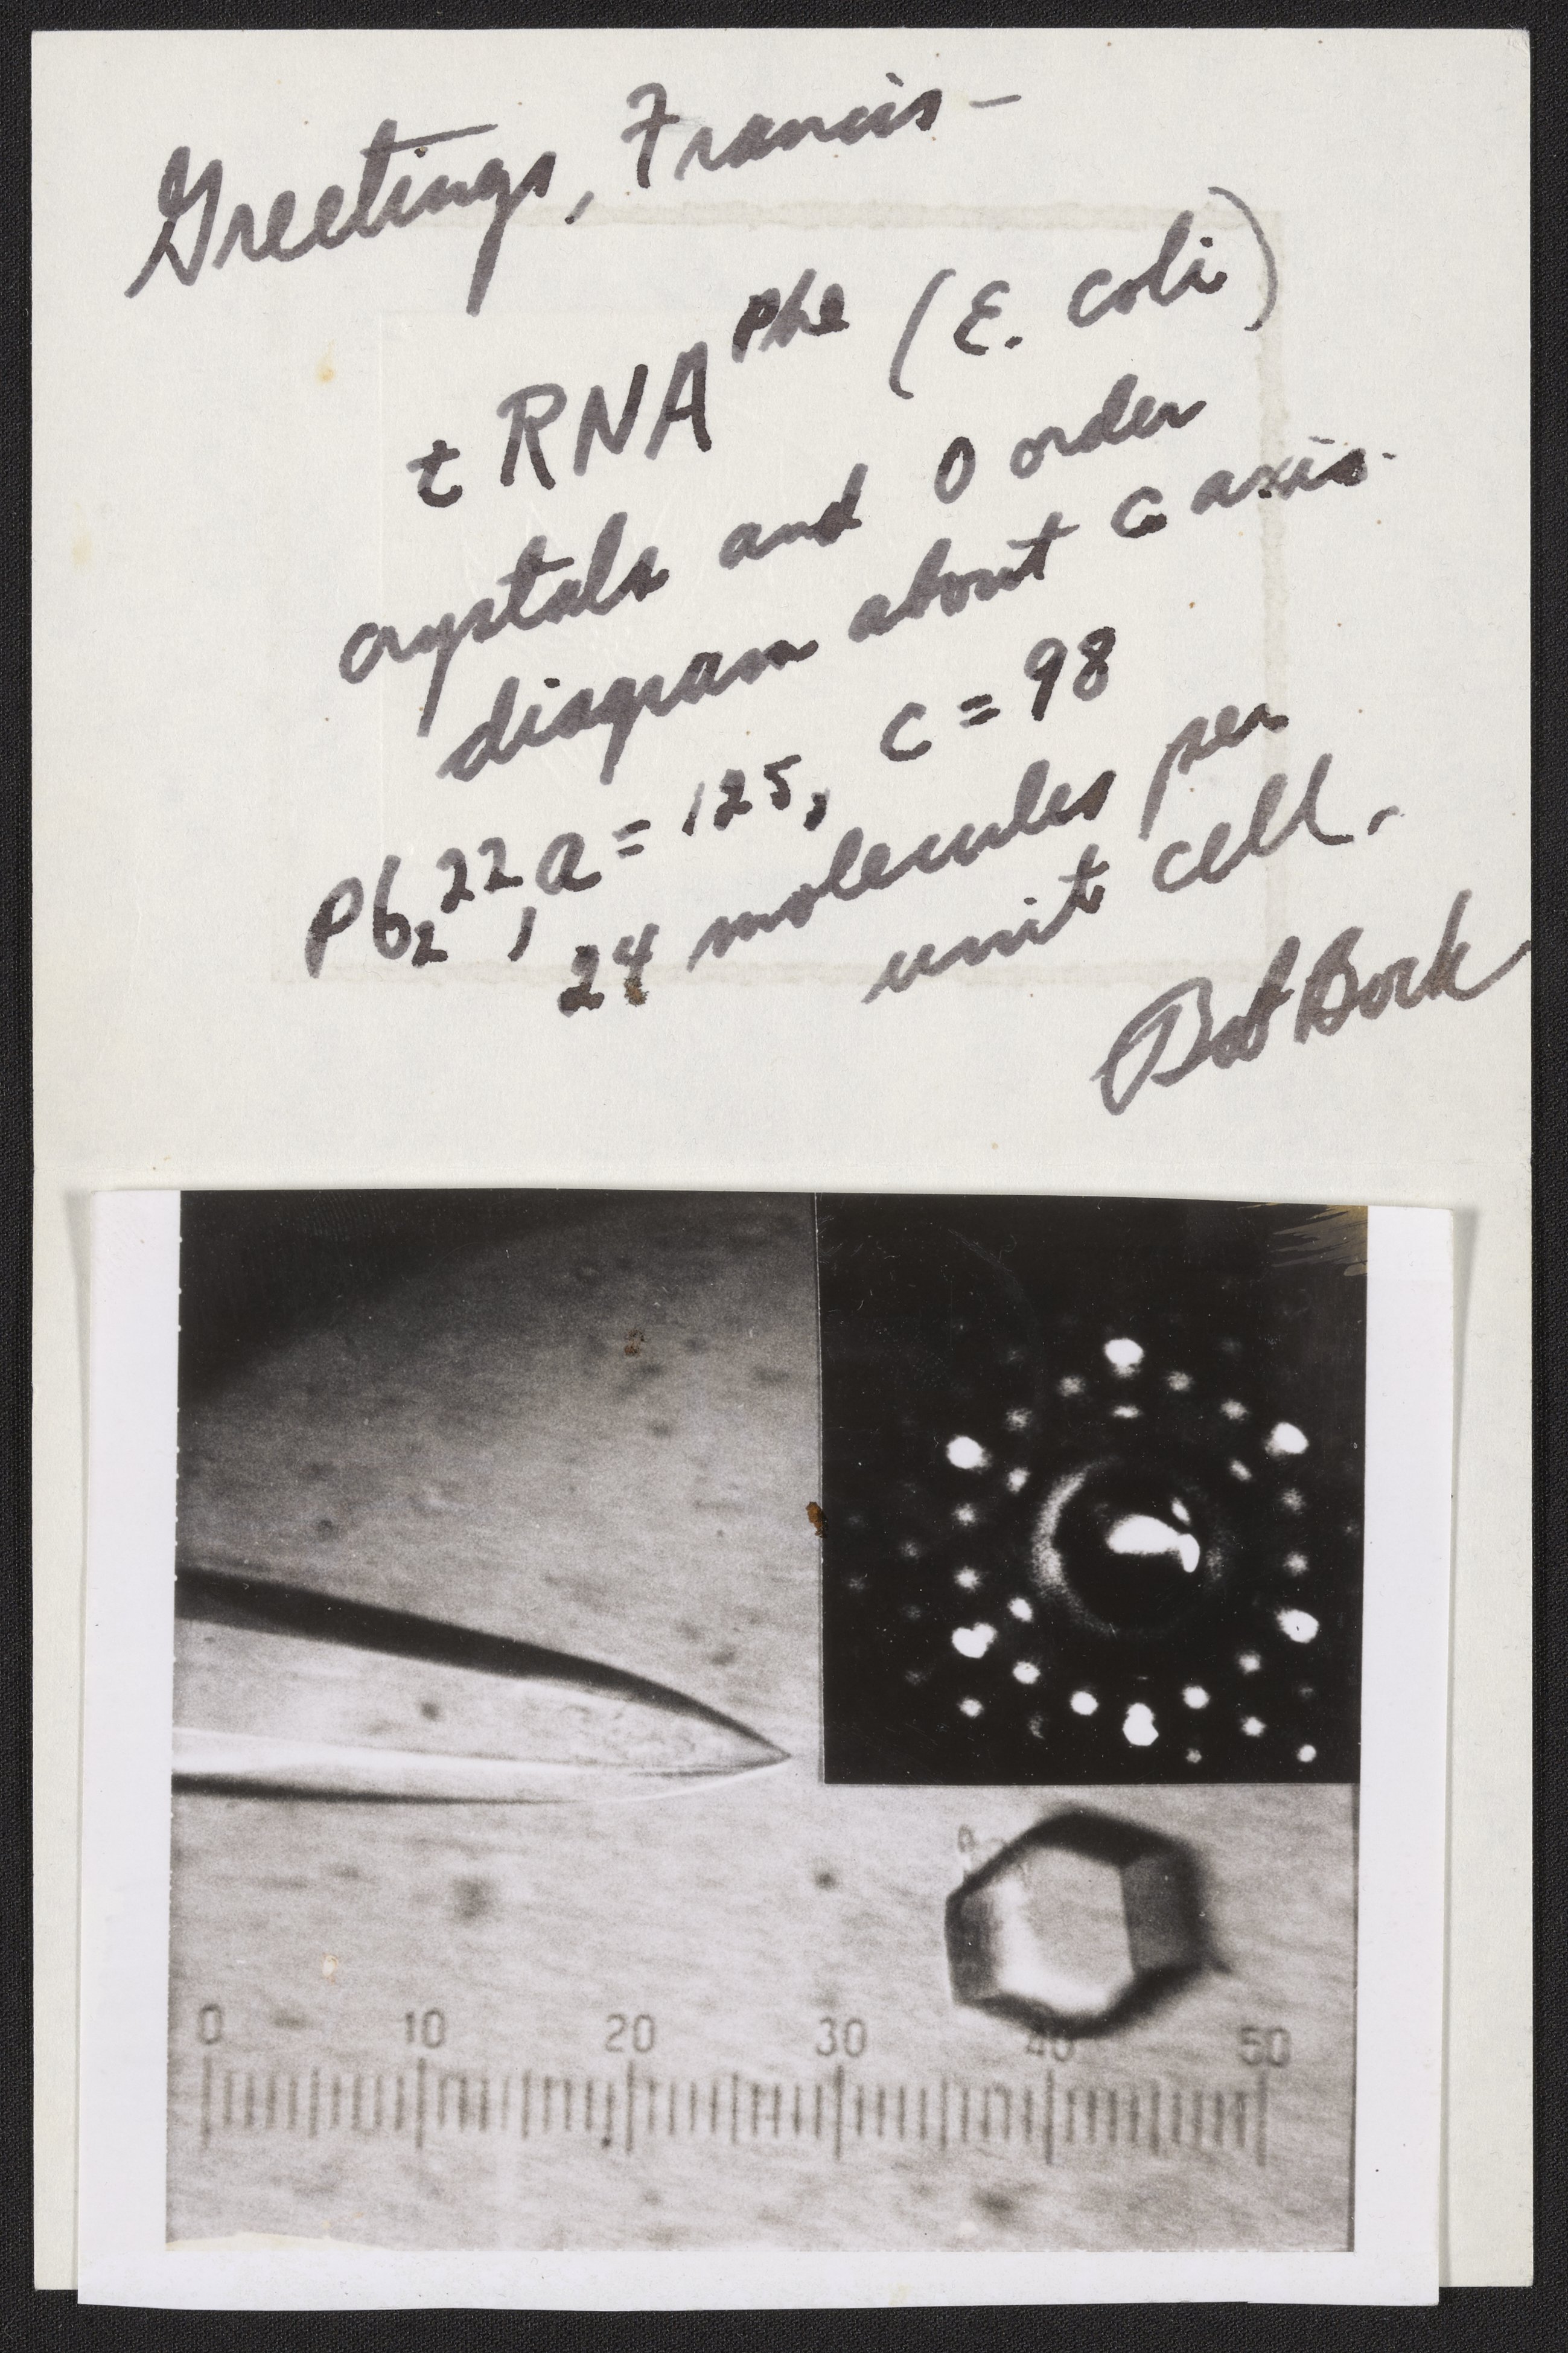 Greetings, Francis—
tRNA^Phe (E. coli)
crystals and 0 order
diagram about c axis.
P6₂22, a = 125, c = 98
24 molecules per
unit cell.
Bob Bock
0 10 20 30 40 50